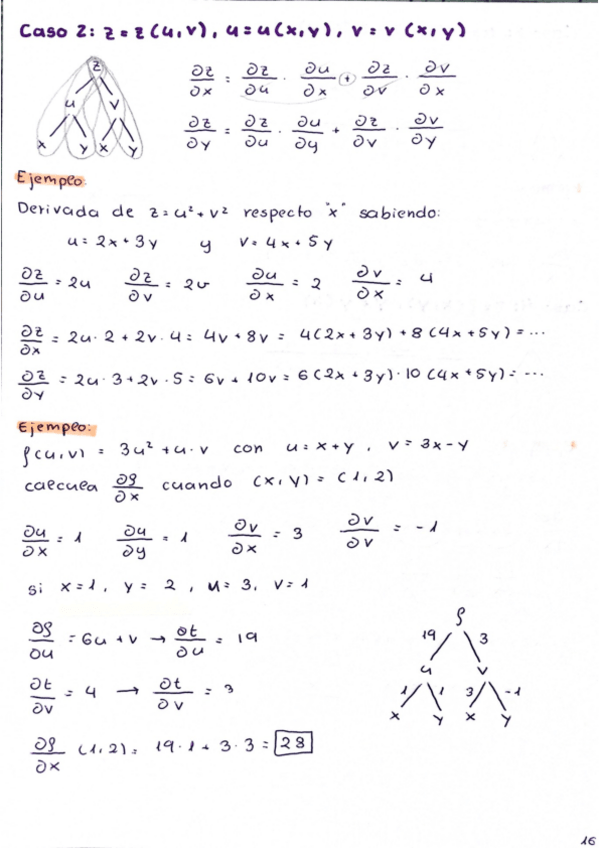 Caso 2: z = z(u,v), u = u(x,y), v = v(x,y)
z
u v
x y x y
∂z/∂x = ∂z/∂u · ∂u/∂x + ∂z/∂v · ∂v/∂x
∂z/∂y = ∂z/∂u · ∂u/∂y + ∂z/∂v · ∂v/∂y
Ejemplo:
Derivada de z = u² + v² respecto "x" sabiendo:
u = 2x + 3y y v = 4x + 5y
∂z/∂u = 2u ∂z/∂v = 2v ∂u/∂x = 2 ∂v/∂x = 4
∂z/∂x = 2u · 2 + 2v · 4 = 4v + 8v = 4(2x + 3y) + 8(4x + 5y) = ...
∂z/∂y = 2u · 3 + 2v · 5 = 6v + 10v = 6(2x + 3y) · 10(4x + 5y) = ...
Ejemplo:
f(u,v) = 3u² + u·v con u = x+y, v = 3x-y
calcula ∂f/∂x cuando (x,y) = (1,2)
∂u/∂x = 1 ∂u/∂y = 1 ∂v/∂x = 3 ∂v/∂v = -1
si x=1, y= 2, u= 3, v= 1
∂f/∂u = 6u + v → ∂t/∂u = 19
∂t/∂v = 4 → ∂t/∂v = 3
∂f/∂x (1,2) = 19·1 + 3·3 = 28
f
19 3
u v
1 1 3 -1
x y x y
16